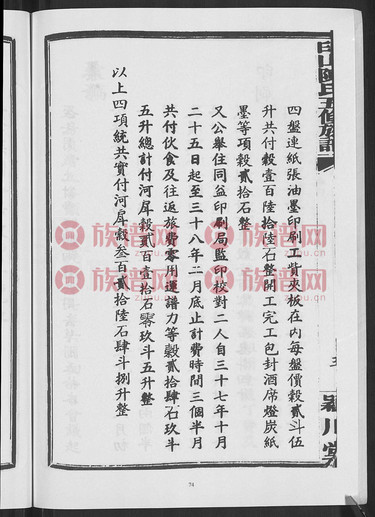 印山陳氏五修族譜
四盤連紙張油墨印刷工貲夾板在內每盤價穀貳斗伍
升共付穀壹百陸拾陸石整開工完工包封酒席燈炭紙
墨等項穀貳拾石整
又公舉住同益印刷局監印校對二人自三十七年十月
二十五日起至三十八年二月底止計費時間三個半月
共付伙食及往返旅費零用運譜力等穀貳拾肆石玖斗
五升總計付河斛穀貳百壹拾石零玖斗五升整
以上四項統共實付河斛穀叁百貳拾陸石肆斗捌升整
五
潁川堂
74
族譜网
zupu.cn